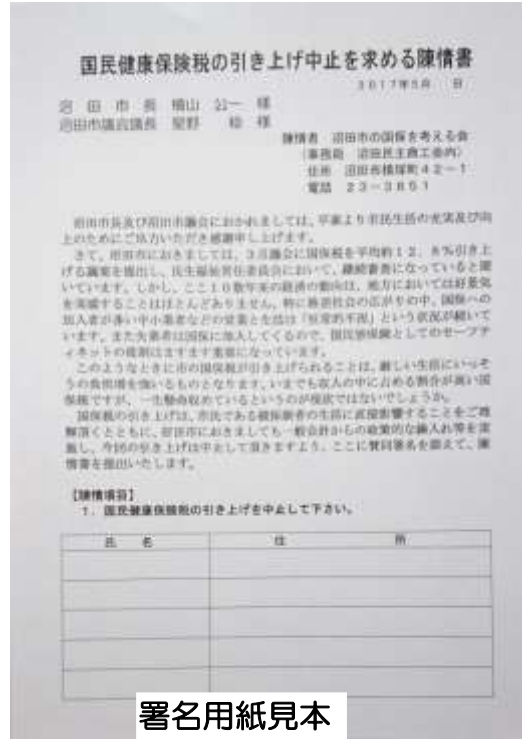 国民健康保険税の引き上げ中止を求める陳情書
2017年5月　日
沼田市長 横山 公一 様
沼田市議会議長 星野 稔 様
陳情者 沼田市の国保を考える会
（事務局 沼田民主商工会内）
住所 沼田市横塚町42－1
電話 23－3851
沼田市長及び沼田市議会におかれましては、平素より市民生活の充実及び向
上のためにご尽力いただき感謝申し上げます。
さて、沼田市におきましては、3月議会に国保税を平均約12．8％引き上
げる議案を提出し、民生福祉常任委員会において、継続審査になっていると聞
いています。しかし、ここ10数年来の経済の動向は、地方においては好景気
を実感することはほとんどありません。特に格差社会の広がりの中、国保への
加入者が多い中小業者などの営業と生活は「恒常的不況」という状況が続いて
います。また失業者は国保に加入してくるので、国民皆保険としてのセーフテ
ィネットの役割はますます重要になっています。
このようなときに市の国保税が引き上げられることは、厳しい生活にいっそ
うの負担増を強いるものとなります。いまでも収入の中に占める割合が高い国
保税ですが、一生懸命収めているというのが現状ではないでしょうか。
国保税の引き上げは、市民である被保険者の生活に直接影響することをご理
解頂くとともに、沼田市におきましても一般会計からの政策的な繰入れ等を実
施し、今回の引き上げは中止して頂きますよう、ここに賛同署名を添えて、陳
情書を提出いたします。
【陳情項目】
1．国民健康保険税の引き上げを中止して下さい。
氏　名　住　所
署名用紙見本